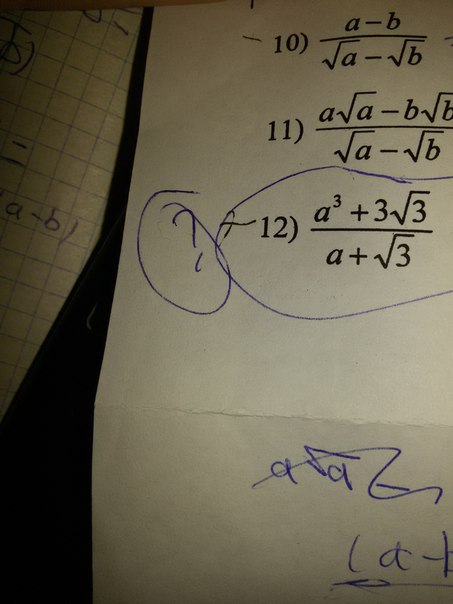 10) \frac{a-b}{\sqrt{a}-\sqrt{b}}
11) \frac{a\sqrt{a}-b\sqrt{b}}{\sqrt{a}-\sqrt{b}}
? 12) \frac{a^3+3\sqrt{3}}{a+\sqrt{3}}
a-b)
a\sqrt{a}
(a-b